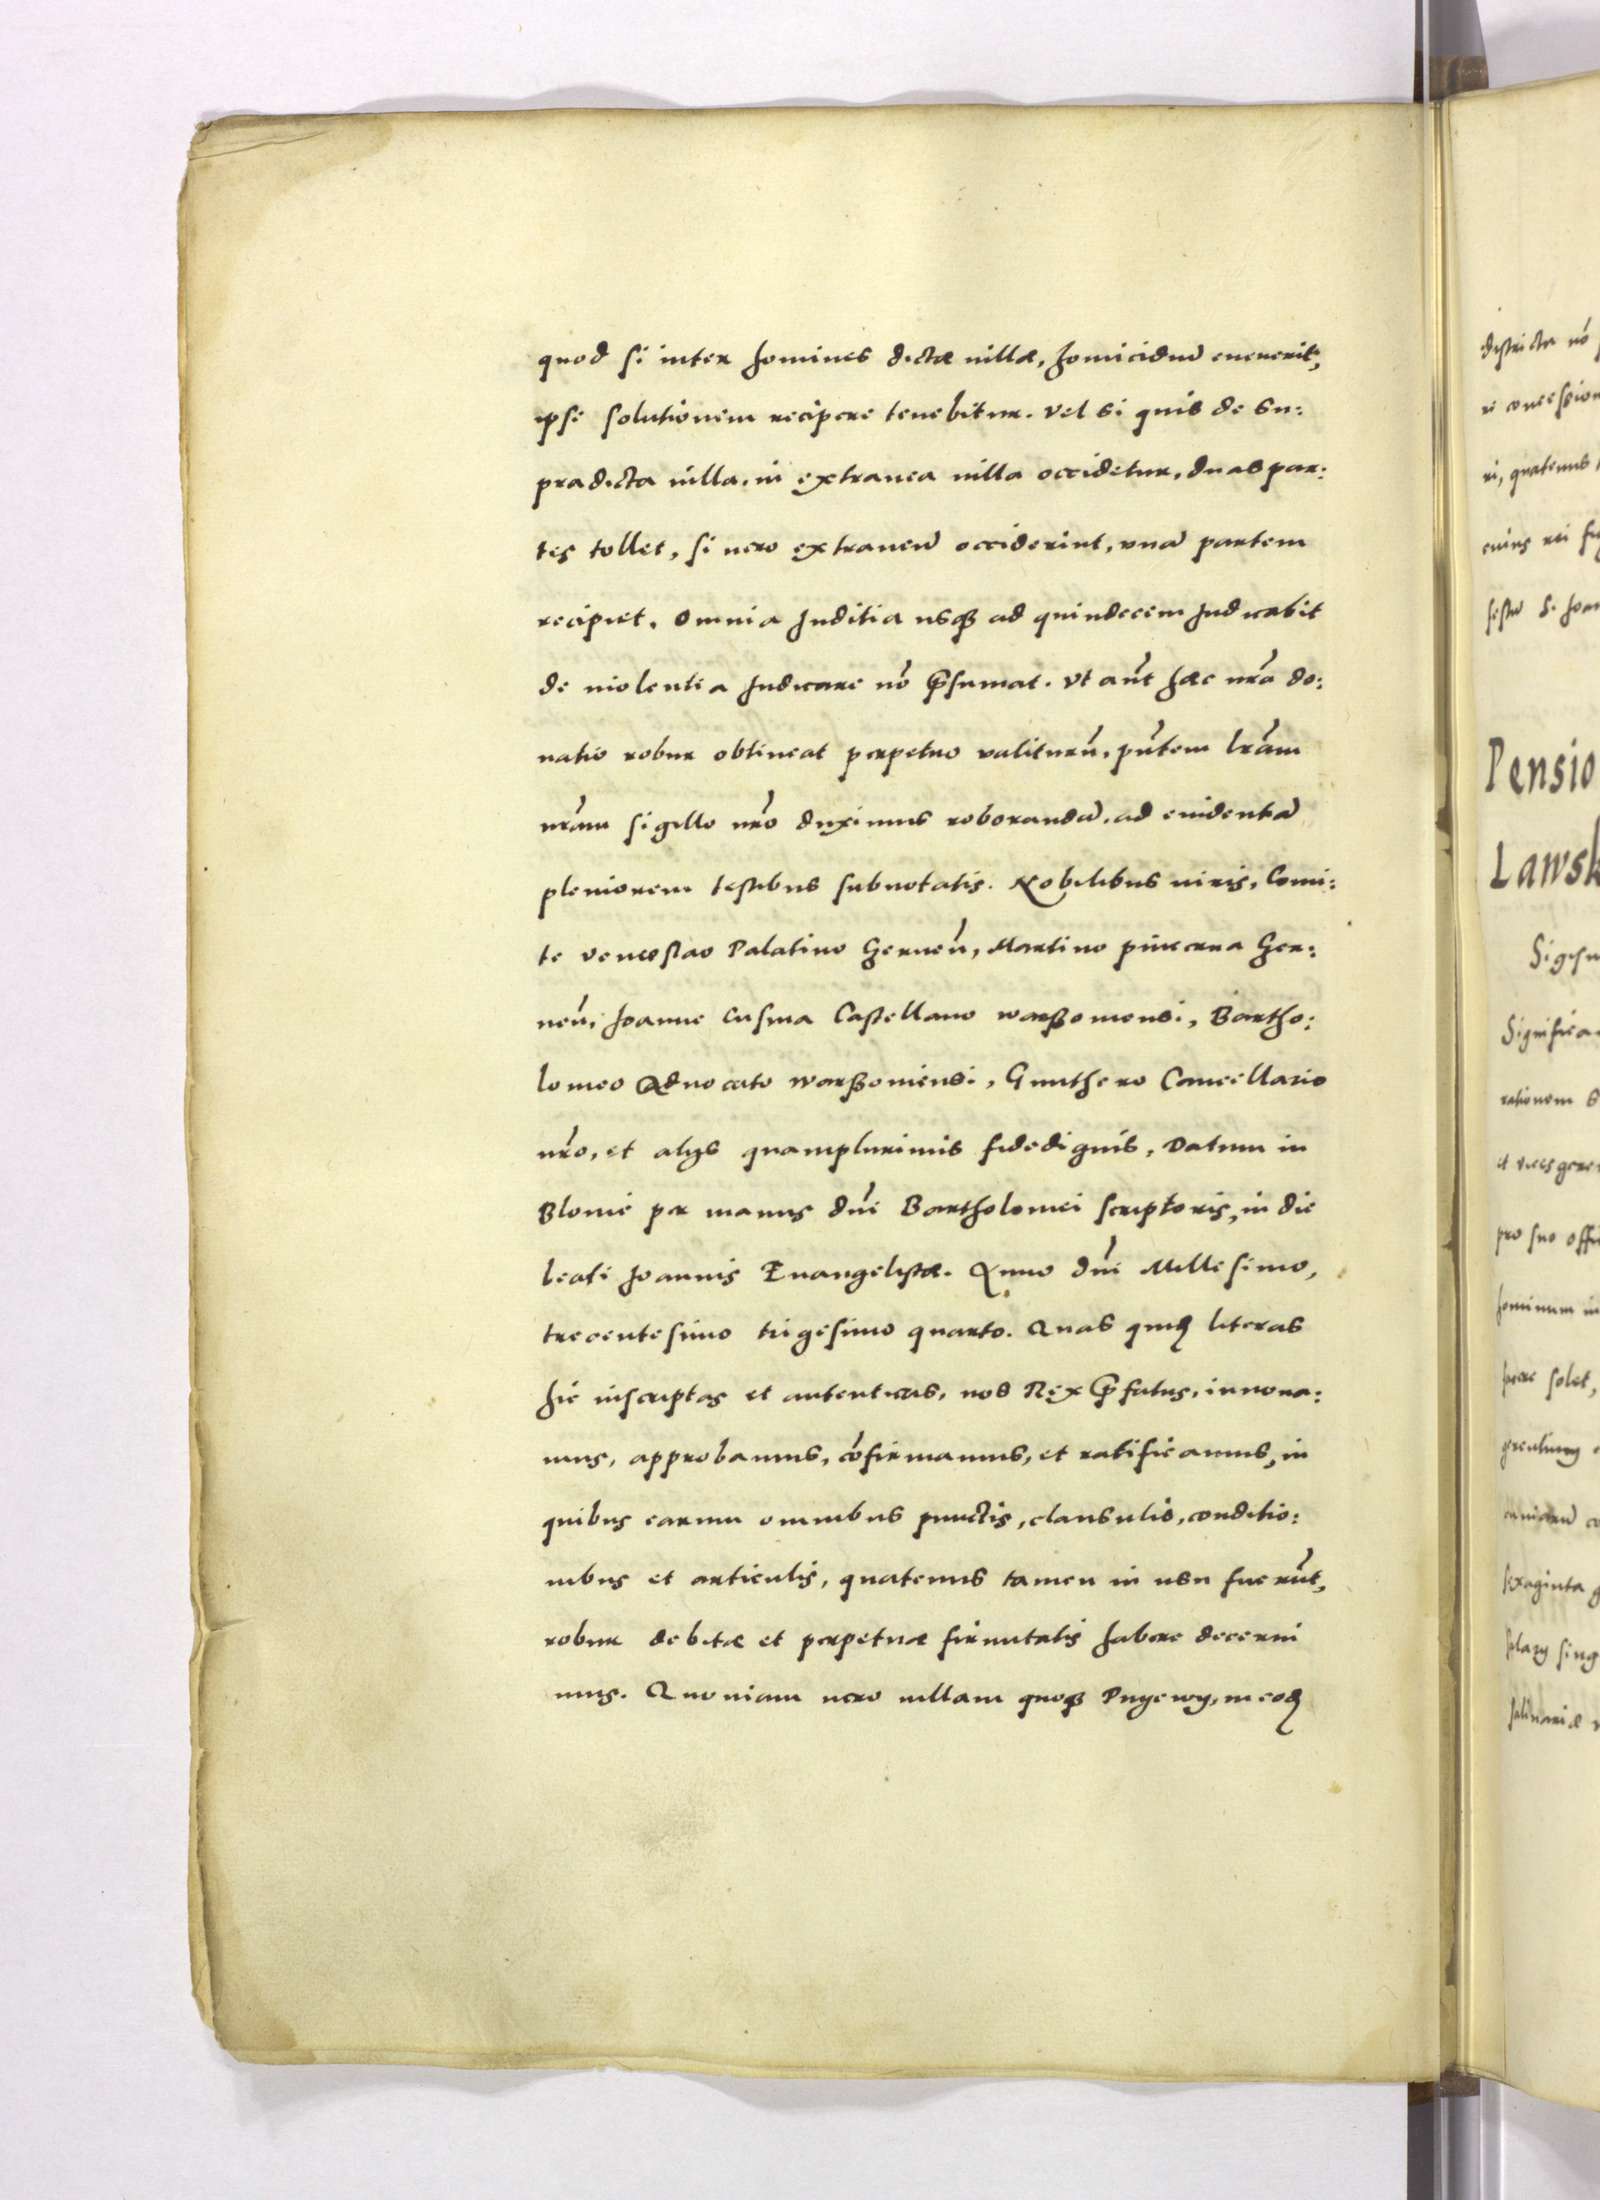 quod si inter homines dictæ uillæ, homicidiũ euenerit,
ipse solutionem recipere tenebitur. Vel si quis de su:
pradicta uilla, in extranea uilla occidetur, duas par:
tes tollet, si uero extraneũ occiderint, unã partem
recipiet. Omnia Juditia usqȝ ad quindecem Judicabit
de uiolentia Judicare nõ p̃sumat. Vt aũt hæc nr̃a do:
natio robur obtineat perpetuo valiturũ, pñtem lr̃am
nr̃am sigillo nr̃o duximus roborandã, ad euidentiã
pleniorem testibus subnotatis. Nobilibus uiris, Comi:
te venceslao Palatino Gerneñ, Martino pincerna Ger:
neñ, Joanne Cusma Castellano warßouiensi, Bartho:
lomeo Aduocato warßouiensi, Gunthero Cancellario
nr̃o, et alijs quamplurimis fidedignis, Datum in
Blonie per manus dñi Bartholomei scriptoris, in die
beati Joannis Euangelistæ. Anno dñi Millesimo,
trecentesimo trigesimo quarto. Quas quidẽ literas
hic inscriptas et autenticas, nos Rex p̃fatus, innoua:
mus, approbamus, cõfirmamus, et ratificamus, in
quibus earum omnibus punctis, clausulis, conditio:
nibus et articulis, quatenus tamen in usu fuerũt,
robur debitæ et perpetuæ firmitatis habere decerni
mus. Quoniam uero uillam quoqȝ Pnyewy, in eodẽ
districta nõ
re concession
ri, quatenus
cuius rei
festũ S. Joan
Pensio
Lawsk
Sigism
Significa
rationem s
et vices gere
pro suo offi
hominum in
facere solet,
sexaginta g
salarij sing